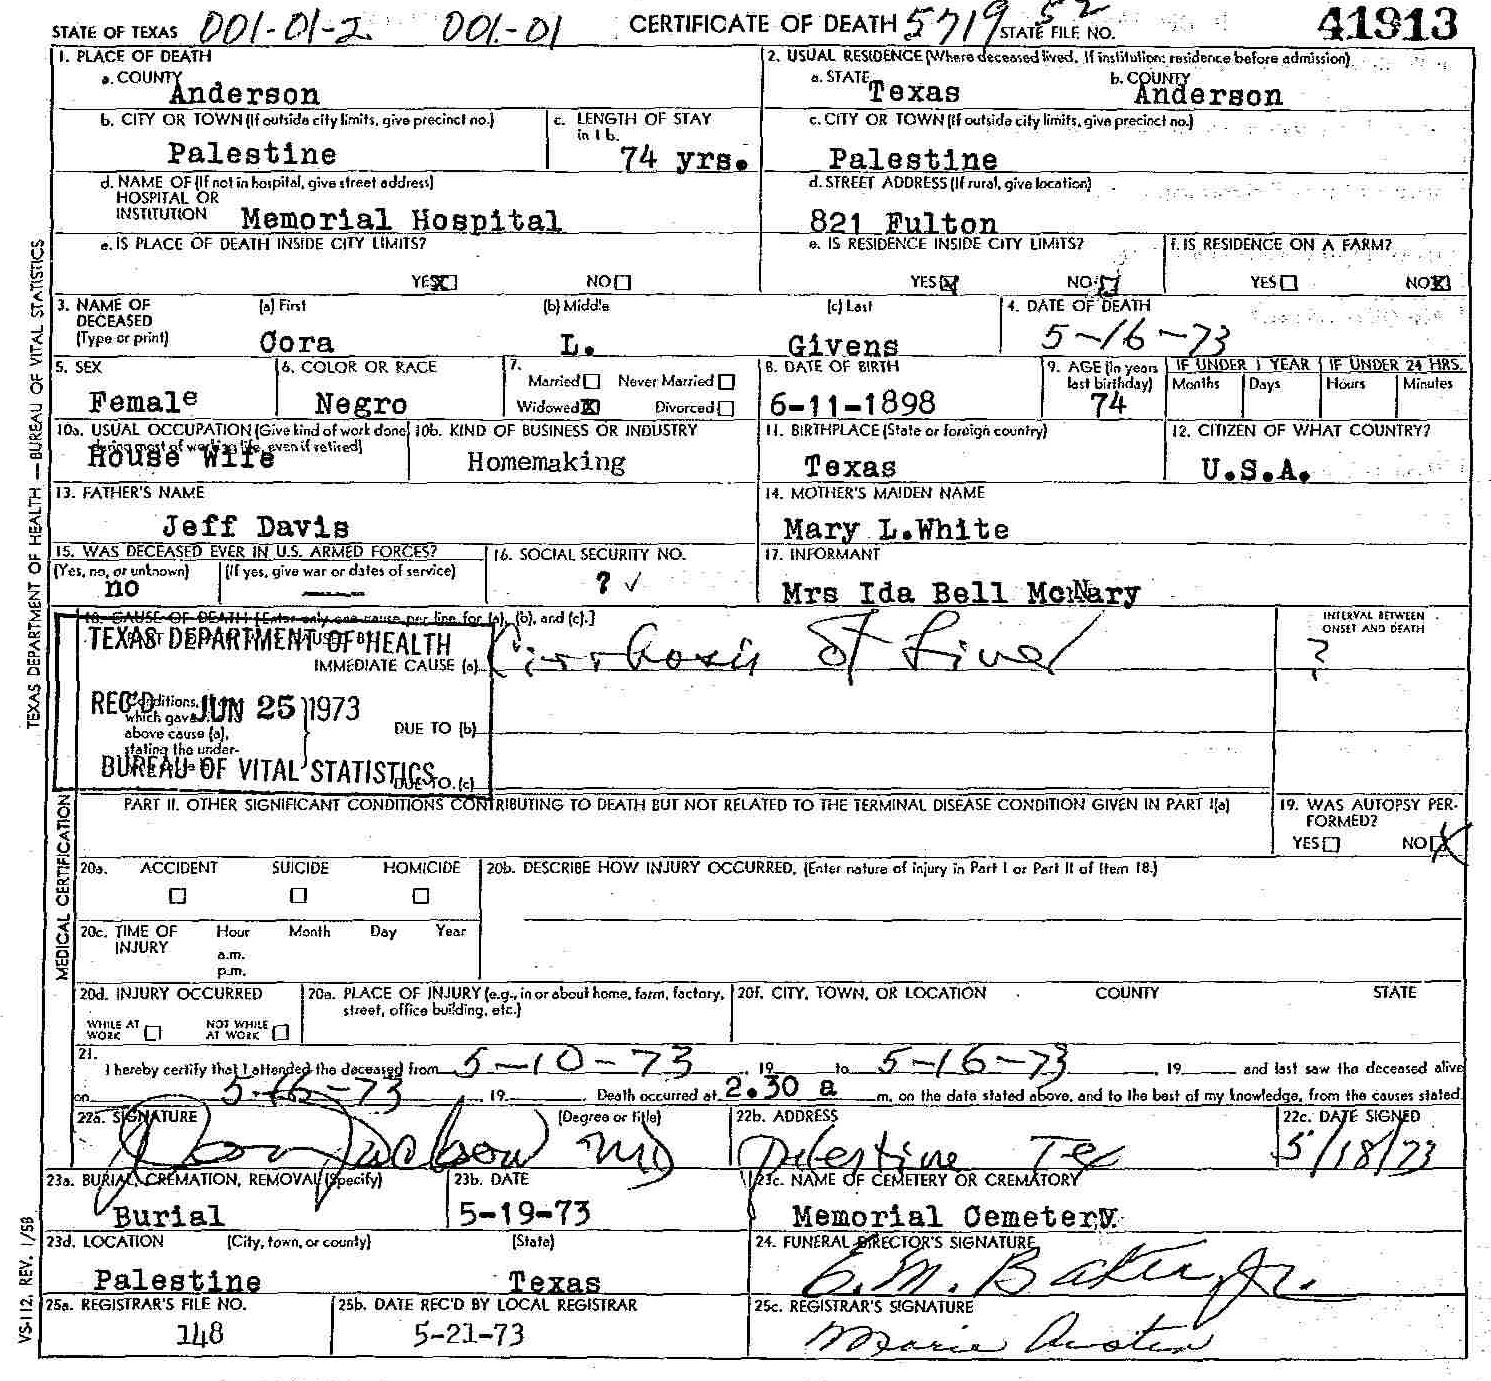 STATE OF TEXAS 001-01-2 001-01 CERTIFICATE OF DEATH 5719 52 STATE FILE NO. 41913
1. PLACE OF DEATH
a. COUNTY
Anderson
2. USUAL RESIDENCE (Where deceased lived. If institution: residence before admission)
a. STATE b. COUNTY
Texas Anderson
b. CITY OR TOWN (If outside city limits, give precinct no.)
Palestine
c. LENGTH OF STAY
in 1 b.
74 yrs.
c. CITY OR TOWN (If outside city limits, give precinct no.)
Palestine
d. NAME OF (If not in hospital, give street address)
HOSPITAL OR
INSTITUTION Memorial Hospital
d. STREET ADDRESS (If rural, give location)
821 Fulton
e. IS PLACE OF DEATH INSIDE CITY LIMITS?
YES NO
e. IS RESIDENCE INSIDE CITY LIMITS?
YES NO
f. IS RESIDENCE ON A FARM?
YES NO
3. NAME OF
DECEASED
(Type or print)
(a) First (b) Middle (c) Last
Cora L. Givens
4. DATE OF DEATH
5-16-73
5. SEX
Female
6. COLOR OR RACE
Negro
7.
Married Never Married
Widowed Divorced
8. DATE OF BIRTH
6-11-1898
9. AGE (In years
last birthday)
74
IF UNDER 1 YEAR IF UNDER 24 HRS.
Months Days Hours Minutes
10a. USUAL OCCUPATION (Give kind of work done
during most of working life, even if retired)
House Wife
10b. KIND OF BUSINESS OR INDUSTRY
Homemaking
11. BIRTHPLACE (State or foreign country)
Texas
12. CITIZEN OF WHAT COUNTRY?
U.S.A.
13. FATHER'S NAME
Jeff Davis
14. MOTHER'S MAIDEN NAME
Mary L.White
15. WAS DECEASED EVER IN U.S. ARMED FORCES?
(Yes, no, or unknown) (If yes, give war or dates of service)
no
16. SOCIAL SECURITY NO.
? ✓
17. INFORMANT
Mrs Ida Bell McNary
18. CAUSE OF DEATH [Enter only one cause per line for (a), (b), and (c).]
INTERVAL BETWEEN
ONSET AND DEATH
TEXAS DEPARTMENT OF HEALTH
IMMEDIATE CAUSE (a) Cirrhosis of Liver ?
REC'D JUN 25 1973
Conditions,
which gave
above cause (a),
stating the under-
DUE TO (b)
BUREAU OF VITAL STATISTICS
DUE TO (c)
PART II. OTHER SIGNIFICANT CONDITIONS CONTRIBUTING TO DEATH BUT NOT RELATED TO THE TERMINAL DISEASE CONDITION GIVEN IN PART I(a)
19. WAS AUTOPSY PER-
FORMED?
YES NO
20a. ACCIDENT SUICIDE HOMICIDE
20b. DESCRIBE HOW INJURY OCCURRED. (Enter nature of injury in Part I or Part II of Item 18.)
20c. TIME OF
INJURY
Hour Month Day Year
a.m.
p.m.
20d. INJURY OCCURRED
WHILE AT
WORK
NOT WHILE
AT WORK
20e. PLACE OF INJURY (e.g., in or about home, farm, factory,
street, office building, etc.)
20f. CITY, TOWN, OR LOCATION COUNTY STATE
21.
I hereby certify that I attended the deceased from 5-10-73, 19 to 5-16-73, 19 and last saw the deceased alive
on 5-16-73 19. Death occurred at 2.30 a m, on the date stated above, and to the best of my knowledge, from the causes stated.
22a. SIGNATURE (Degree or title)
Jackson MD
22b. ADDRESS
Palestine Tex
22c. DATE SIGNED
5/18/73
23a. BURIAL, CREMATION, REMOVAL (Specify)
Burial
23b. DATE
5-19-73
23c. NAME OF CEMETERY OR CREMATORY
Memorial Cemetery.
23d. LOCATION (City, town, or county) (State)
Palestine Texas
24. FUNERAL DIRECTOR'S SIGNATURE
E.M. Baker, Jr.
25a. REGISTRAR'S FILE NO.
148
25b. DATE REC'D BY LOCAL REGISTRAR
5-21-73
25c. REGISTRAR'S SIGNATURE
Marie Austin
TEXAS DEPARTMENT OF HEALTH — BUREAU OF VITAL STATISTICS
MEDICAL CERTIFICATION
VS-112, REV. 1/58